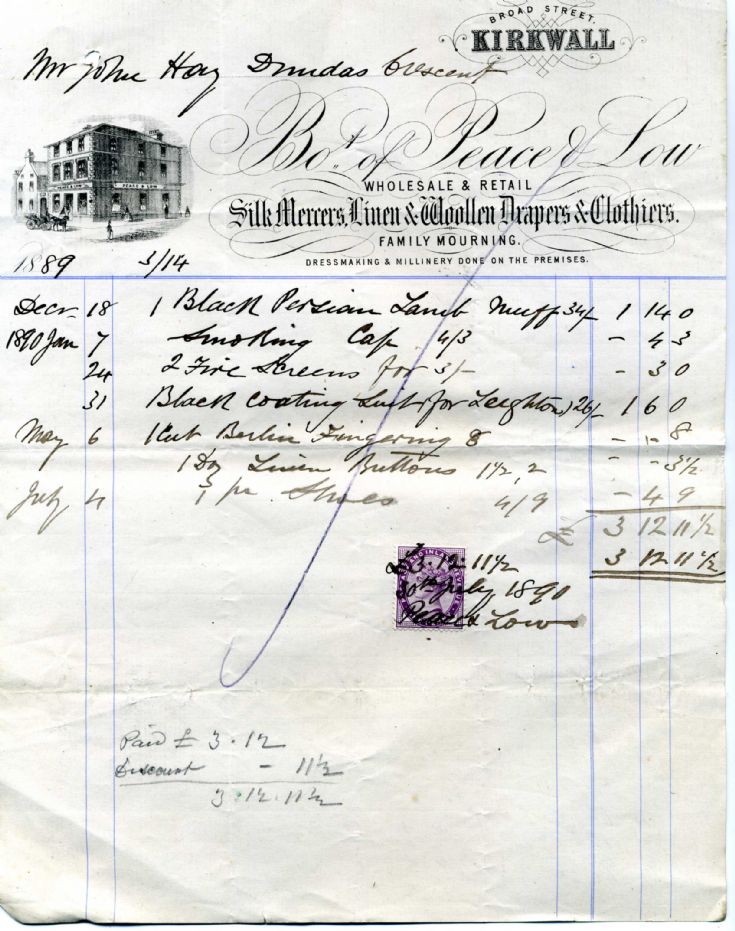 BROAD STREET.
KIRKWALL
Mr John Hay Dundas Crescent
Bot. of Peace & Low
PEACE & LOW
WHOLESALE & RETAIL
Silk Mercers, Linen & Woollen Drapers & Clothiers.
FAMILY MOURNING.
DRESSMAKING & MILLINERY DONE ON THE PREMISES.
1889 3/14
Decr 18 1 Black Persian Lamb Muff 34/- 1 14 0
1890 Jan 7 Smoking Cap 4/3 - 4 3
24 2 Fire Screens for 3/- - 3 0
31 Black Coating Suit (for Leighton) 26/- 1 6 0
May 6 1 Cut Berlin Fingering 8 - - 8
1 Doz Linen Buttons 1½, 2 - - 3½
July 4 1 pr Shoes 4/9 - 4 9
£ 3 12 11½
3 12 11½
3.12.11½
30th July 1890
Peace & Low
Paid £ 3.12
Discount - 11½
3.12.11½